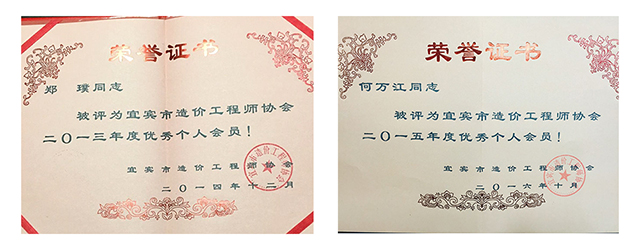 荣誉证书
郑 璞同志
被评为宜宾市造价工程师协会
二〇一三年度优秀个人会员！
宜宾市造价工程师协会
二〇一四年十二月
荣誉证书
何万江同志
被评为宜宾市造价工程师协会
二〇一五年度优秀个人会员！
宜宾市造价工程师协会
二〇一六年十月